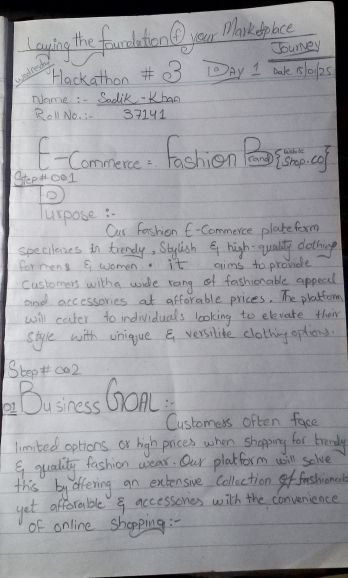 Laying the foundation of your Marketplace
Journey
Wednesday
Hackathon # 3 Day 1 Date 15/01/25
Name :- Sadik-Khan
Roll No. :- 37141
E-Commerce = Fashion Brand {Website Shop.co}
Step# 001
Purpose :-
Our fashion E-Commerce plateform
specilaizes in trendy, Stylish & high-quality clothing
for mens & women. it aims to provide
customers with a wide rang of fashionable appeal
and accessories at afforable prices. The platform
will cater to individuals looking to elevate their
style with winique & versilite clothing options.
Step# 002
01 Business GOAL :-
Customers often face
limited options or high prices when shopping for trendy
& quality fashion wear. Our platform will solve
this by offering an extensive collection of fashionable
yet afforable & accessories with the convenience
of online shopping :-